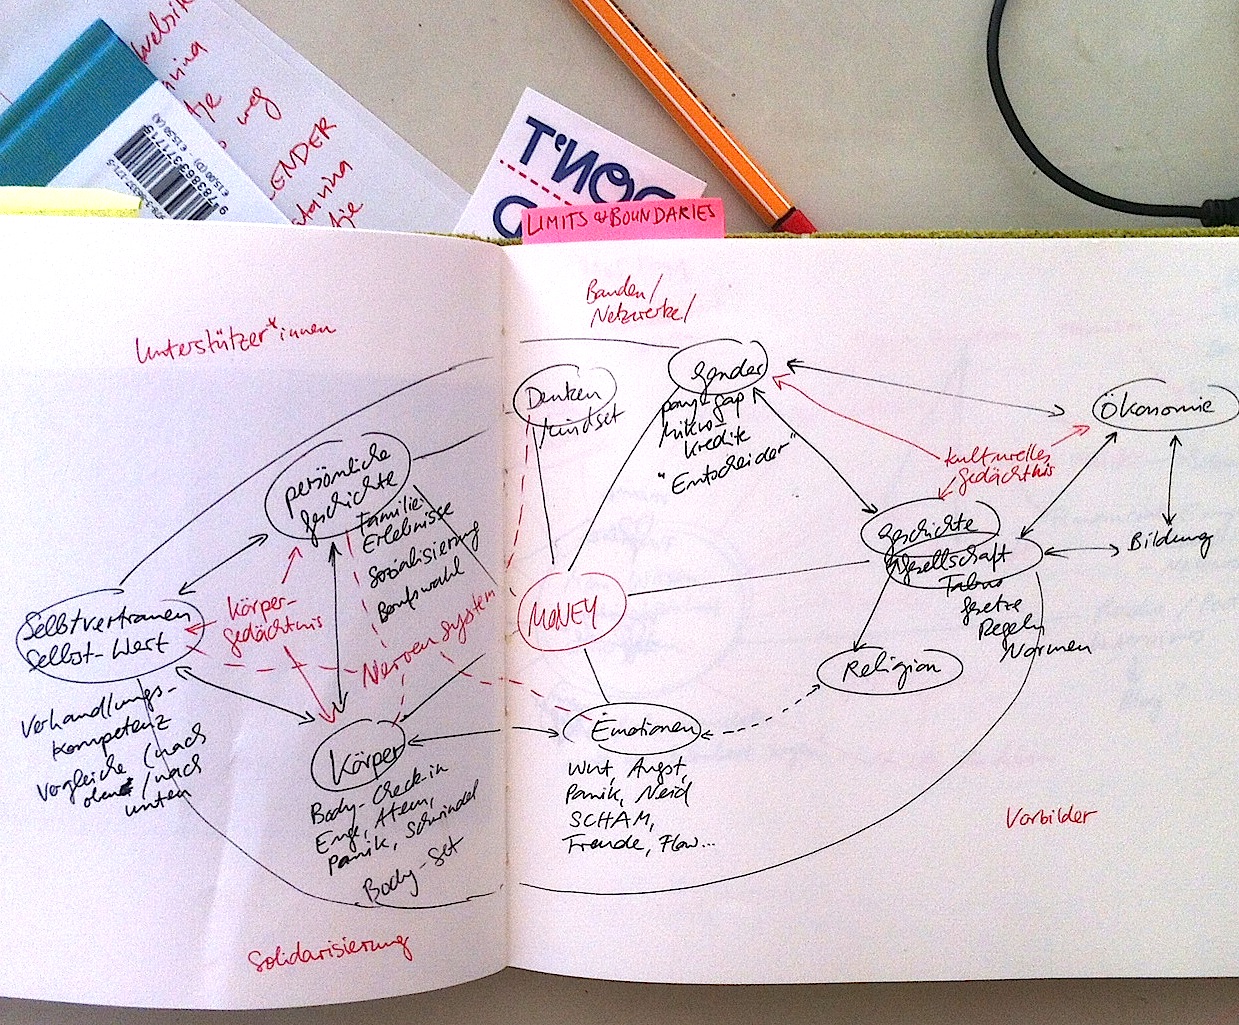 website
weg
ENDER
€15.00 (D)
9783863371715
DON'T
LIMITS & BOUNDARIES
Banden/
Netzwerke/
Unterstützer*innen
Gender
pay-gap
Mikro-
kredite
"Entscheider"
Denken
Mindset
Ökonomie
kulturelles
Gedächtnis
persönliche
Geschichte
Familie
Erlebnisse
Sozialisierung
Berufswahl
Geschichte
Gesellschaft
Tabus
Gesetze
Regeln
Normen
Bildung
MONEY
Körper-
gedächtnis
Selbstvertrauen
Selbst-Wert
Verhandlungs-
kompetenz
Vergleiche (nach
oben/nach
unten
Nervensystem
Religion
Emotionen
Wut, Angst,
Panik, Neid
SCHAM,
Freude, Flow...
Körper
Body-Check-in
Enge, Atem,
Panik, Schwindel
Body-Set
Vorbilder
Solidarisierung